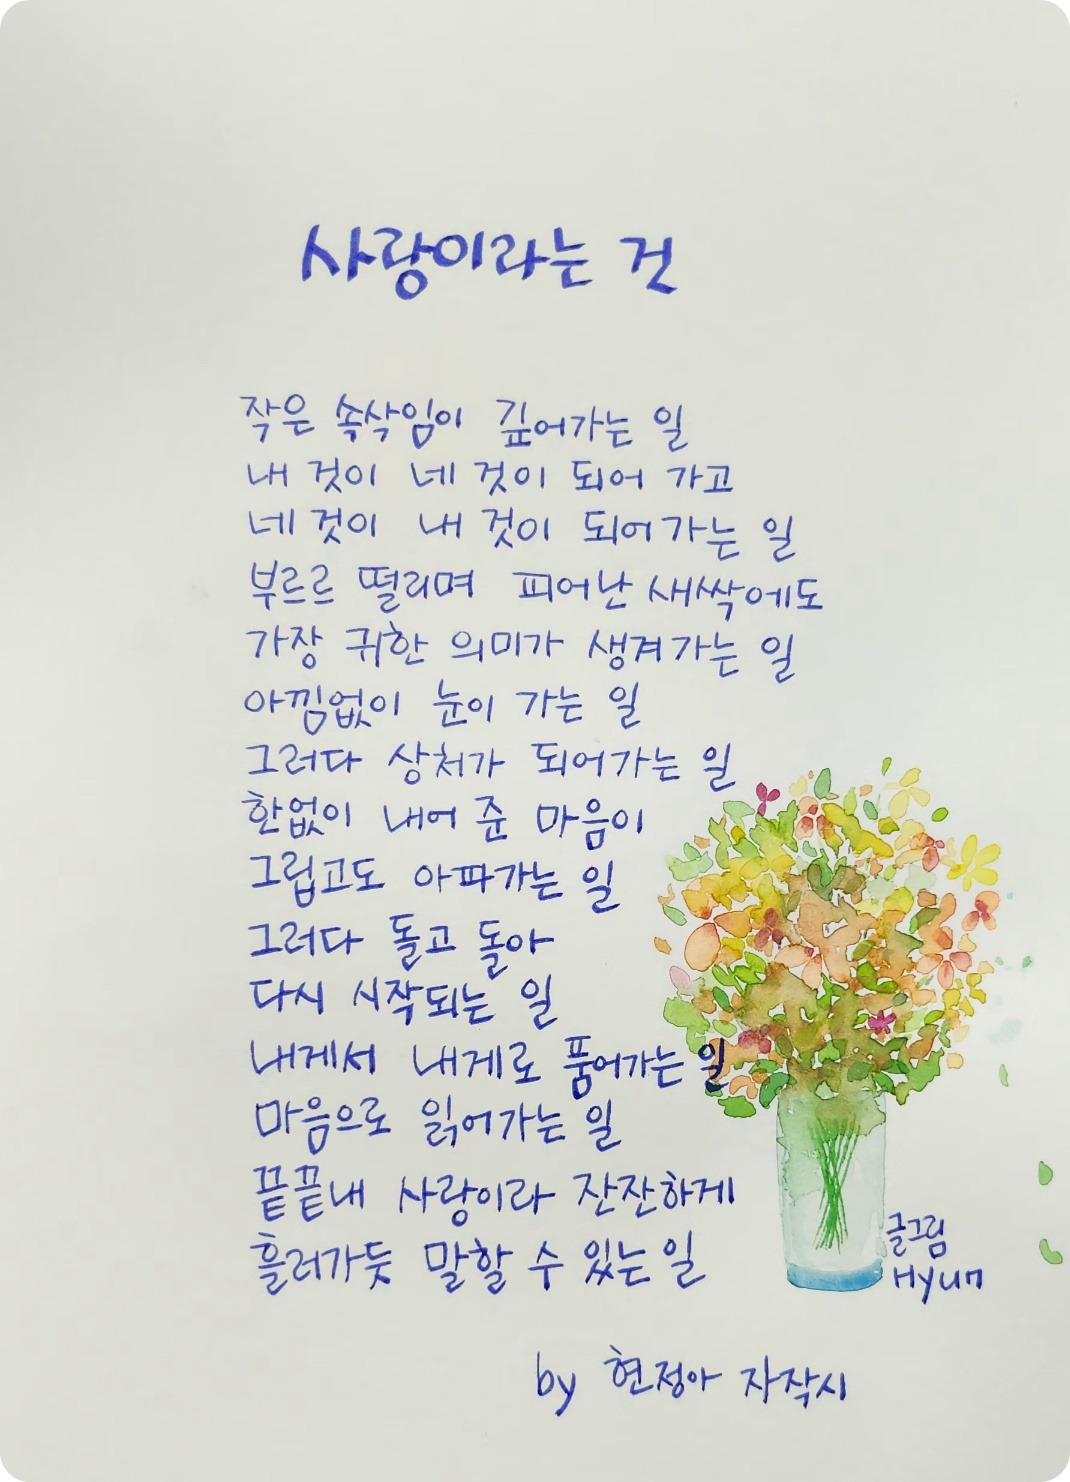 사랑이라는 것
작은 속삭임이 깊어가는 일
내 것이 네 것이 되어 가고
네 것이 내 것이 되어가는 일
부르르 떨리며 피어난 새싹에도
가장 귀한 의미가 생겨가는 일
아낌없이 눈이 가는 일
그러다 상처가 되어가는 일
한없이 내어 준 마음이
그립고도 아파가는 일
그러다 돌고 돌아
다시 시작되는 일
내게서 내게로 품어가는 일
마음으로 읽어가는 일
끝끝내 사랑이라 잔잔하게
흘러가듯 말할 수 있는 일
글그림
Hyun
by 현정아 자작시